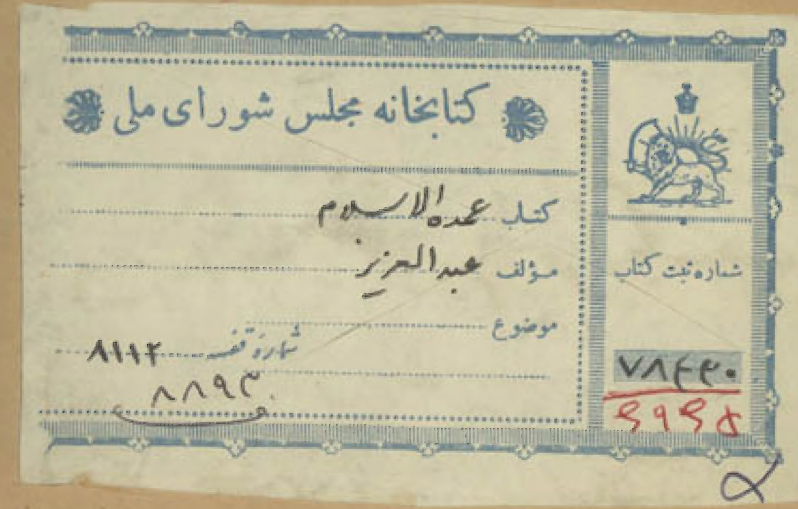 کتابخانه مجلس شورای ملی
کتاب عمدة الاسلام
مؤلف عبدالعزیز
موضوع
شماره قفسه ۸۱۱۲
۸۸۹۳
شماره ثبت کتاب
۷۸۴۴۰